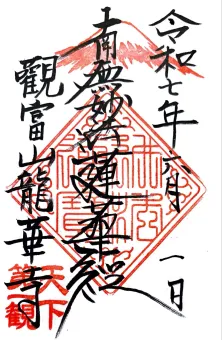 令和七年六月一日
南無妙法蓮華経
観富山龍華寺
天下
第一観